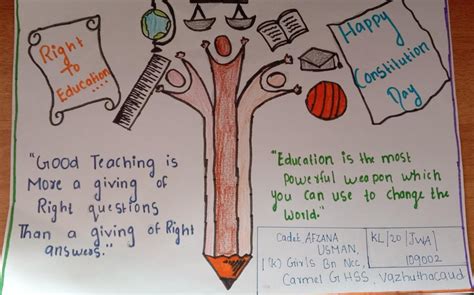 Right
To
Education
Happy
Constitution
Day
"Good Teaching is
More a giving of
Right questions
Than a giving of Right
answers."
"Education is the most
powerful weapon which
you can use to change the
world."
Cadet AFZANA
USMAN,
KL/20/JWA/
109002
1(K) Girls Bn Ncc,
Carmel GHSS, Vazhuthacaud